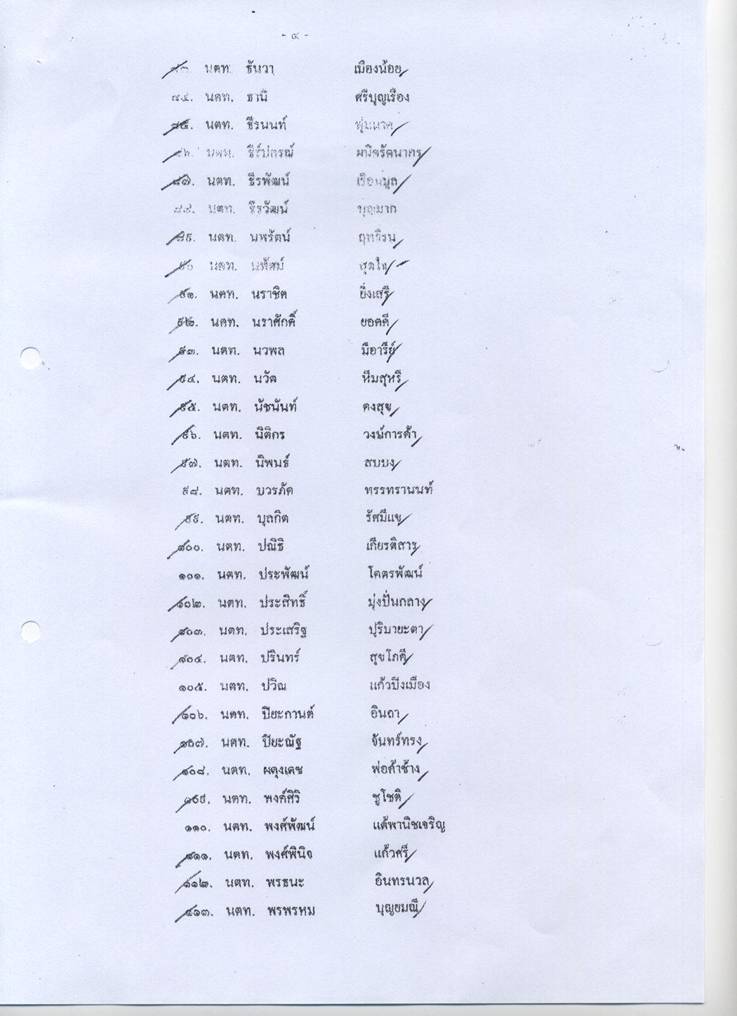 - ๔ -
๘๓. นตท. ธันวา เมืองน้อย
๘๔. นตท. ธานี ศรีบุญเรือง
๘๕. นตท. ธีรนนท์
๘๖. นตท.
๘๗. นตท. ธีรพัฒน์
๘๘. นตท. ธีรวัฒน์ บุญมาก
๘๙. นตท. นพรัตน์
๙๐. นตท.
๙๑. นตท. นราชิต ยิ่งเสรี
๙๒. นตท. นราศักดิ์ ยอดดี
๙๓. นตท. นวพล มีอารีย์
๙๔. นตท. นวัต หีมสุหรี
๙๕. นตท. นัชนันท์ คงสุข
๙๖. นตท. นิติกร วงษ์การค้า
๙๗. นตท. นิพนธ์ สบบง
๙๘. นตท. บวรภัค ทรรทรานนท์
๙๙. นตท. บุลกิต รัศมีแข
๑๐๐. นตท. ปณิธิ เกียรติสาร
๑๐๑. นตท. ประพัฒน์ โคตรพัฒน์
๑๐๒. นตท. ประสิทธิ์ มุ่งปั่นกลาง
๑๐๓. นตท. ประเสริฐ ปุริมายะตา
๑๐๔. นตท. ปรินทร์ สุขโภคี
๑๐๕. นตท. ปวิณ แก้วปิงเมือง
๑๐๖. นตท. ปิยะกานต์ อินถา
๑๐๗. นตท. ปิยะณัฐ จันทร์ทรง
๑๐๘. นตท. ผดุงเดช พ่อค้าช้าง
๑๐๙. นตท. พงศ์ศิริ ชูโชติ
๑๑๐. นตท. พงศ์พัฒน์ แต้พานิชเจริญ
๑๑๑. นตท. พงศ์พินิจ แก้วศรี
๑๑๒. นตท. พรธนะ อินทรนวล
๑๑๓. นตท. พรพรหม บุญยมณี